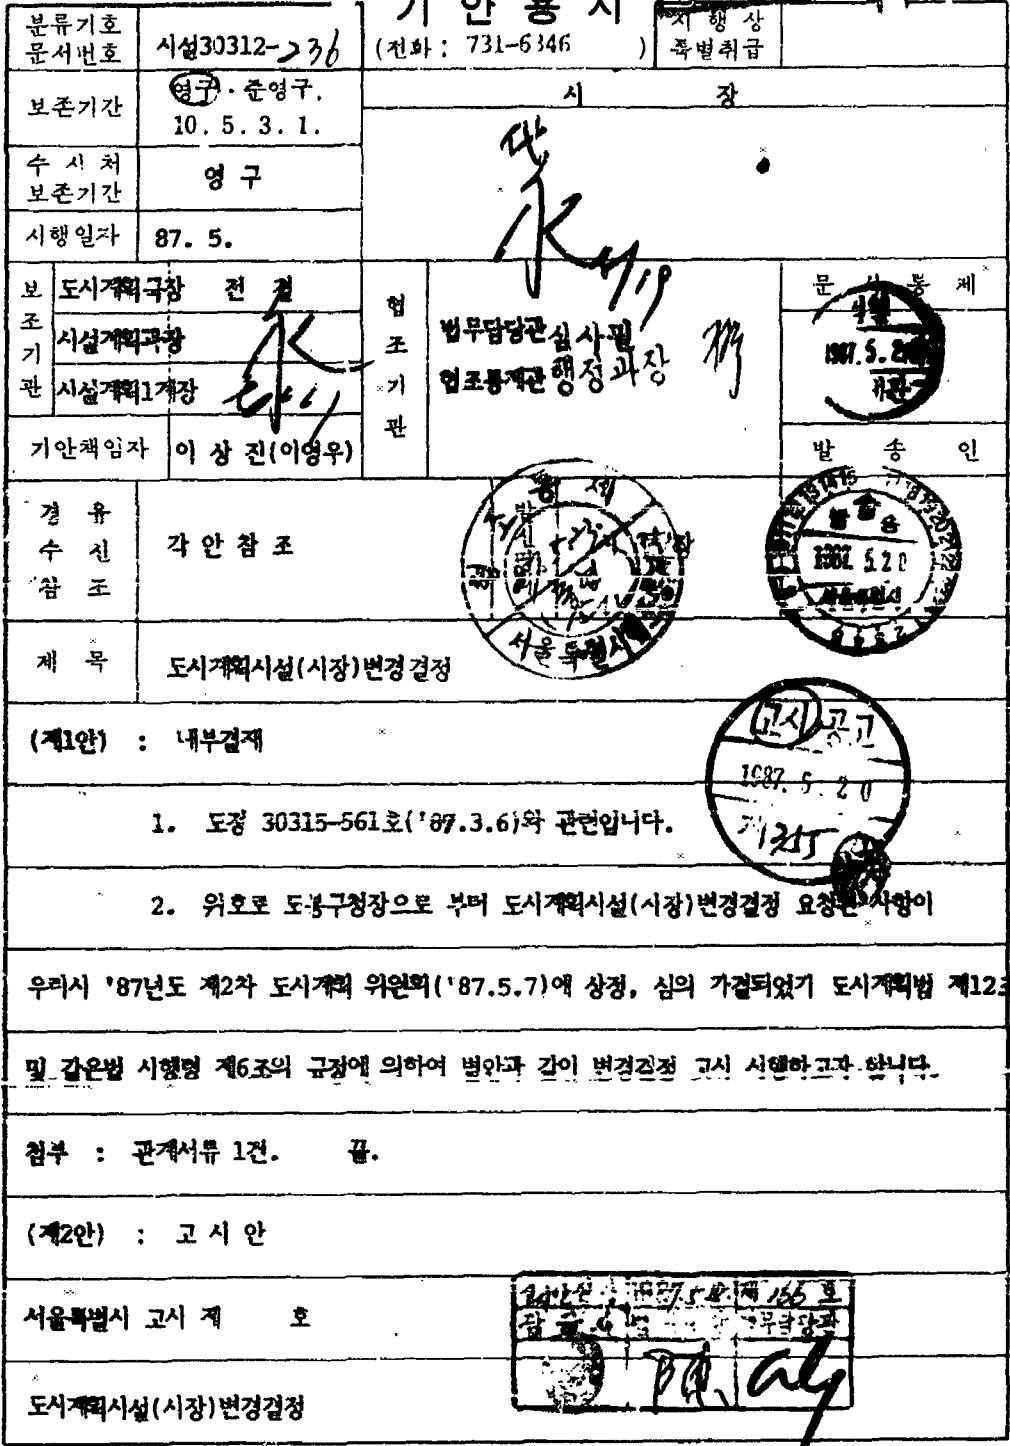 기 안 용 지
분류기호
문서번호
시설30312-236
(전화 : 731-6346 )
시 행 상
특별취급
보존기간
영구 · 준영구.
10. 5. 3. 1.
시 장
수 시 처
보존기간
영 구
시행일자
87. 5.
보
조
기
관
도시계획국장 전 결
시설계획과장
시설계획1계장
협
조
기
관
법무담당관 심사필
협조통제관 행정과장
5/19
문 서 통 제
1987. 5. 20
기안책임자
이 상 진(이영우)
발 송 인
경 유
수 신
참 조
각 안 참 조
통 제
서울특별시
발 송 용
1987. 5. 20
서울특별시
제 목
도시계획시설(시장)변경결정
고시 공고
1987. 5. 20
제1355
(제1안) : 내부결재
1. 도정 30315-561호('87.3.6)와 관련입니다.
2. 위호로 도봉구청장으로 부터 도시계획시설(시장)변경결정 요청된 사항이
우리시 '87년도 제2차 도시계획 위원회('87.5.7)에 상정, 심의 가결되었기 도시계획법 제12조
및 같은법 시행령 제6조의 규정에 의하여 별안과 같이 변경결정 고시 시행하고자 합니다.
첨부 : 관계서류 1건. 끝.
(제2안) : 고 시 안
서울특별시 고시 제 호
제 166 호
도시계획시설(시장)변경결정